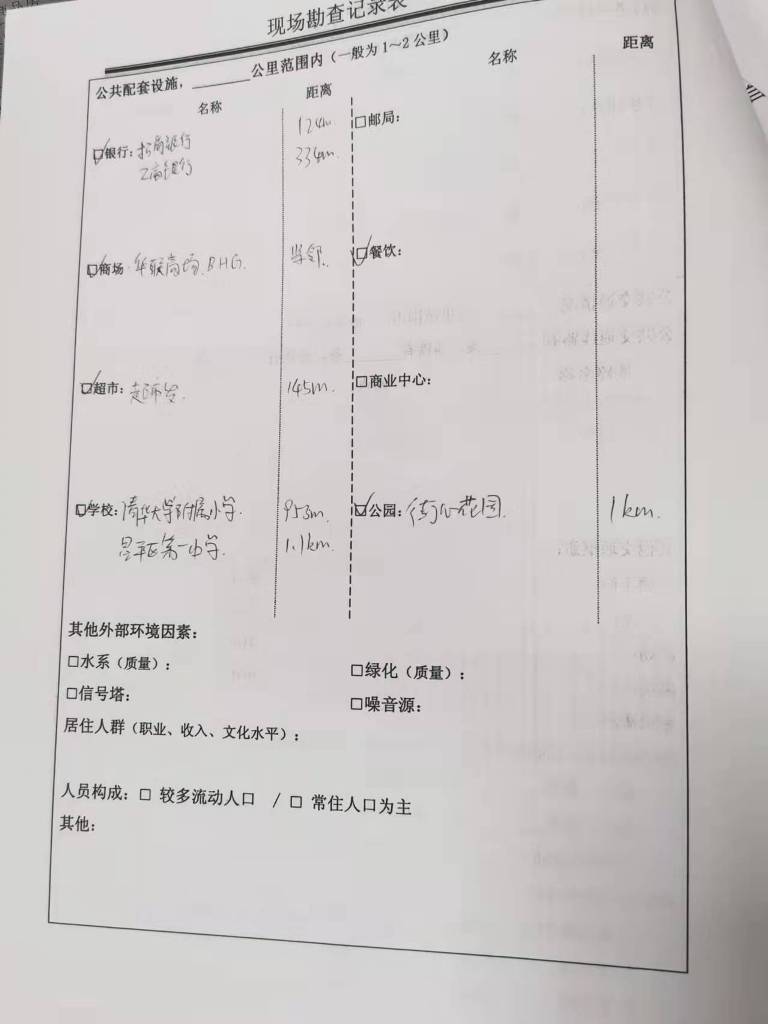 现场勘查记录表
公共配套设施，______公里范围内（一般为1～2公里）
名称 距离 名称 距离
☑银行：招商银行 124m. □邮局：
工商银行 334m.
☑商场 华联商场.BHG. 紧邻. ☑餐饮：
☑超市：超市发. 145m. □商业中心：
☑学校：清华大学附属小学. 953m. ☑公园：街心花园. 1km.
昌平区第一中学. 1.1km.
其他外部环境因素：
□水系（质量）： □绿化（质量）：
□信号塔： □噪音源：
居住人群（职业、收入、文化水平）：
人员构成：□ 较多流动人口 / □ 常住人口为主
其他：